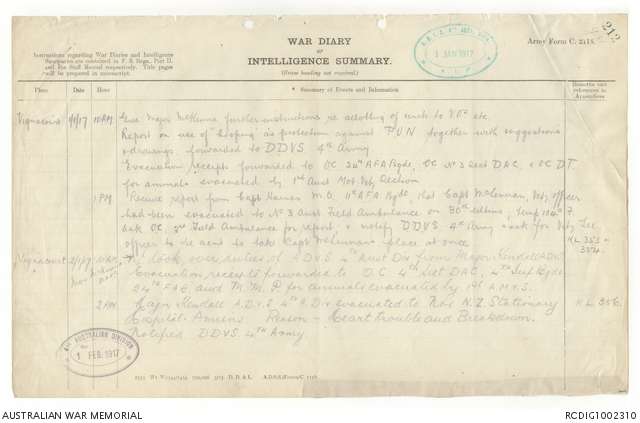 212
WAR DIARY
or
INTELLIGENCE SUMMARY.
(Erase heading not required.)
Army Form C. 2118.
Instructions regarding War Diaries and Intelligence
Summaries are contained in F. S. Regs., Part II.
and the Staff Manual respectively. Title pages
will be prepared in manuscript.
1 JAN 1917
Place Date Hour Summary of Events and Information Remarks and references to Appendices
Vignacourt 1/1/17 10 AM Give Major McKenna further instructions re allotting of units to V.Os etc.
Report on use of as protection against P.U.N together with suggestions
& drawings forwarded to DDVS 4th Army
Evacuation receipts forwarded to OC 24th AFA Bgde, OC No 3 Sect DAC, & OC DT
for animals evacuated by 1st Aust Mob Vety Section
1 PM. Receive report from Capt M.O. 11th AFA Bgde, that Capt McLennan, Vety officer
had been evacuated to No 3 Aust Field Ambulance on 30th ultimo, Temp 104.7
Ask OC 3rd Field Ambulance for report, & notify DDVS 4th Army & ask for Vety
officer to be sent to take Capt McLennan's place at once
KL 353
354
Vignacourt 2/1/17 Took over duties of A.D.V.S 4th Aust Div from Major Kendall ADVS
Evacuation receipts forwarded to O.C. 4th Sect DAC, 4th Inf Bgde
24th F.A.B and M.M.P for animals evacuated by 1st A.M.V.S.
2 PM Major Kendall A.D.V.S 4th A.Div evacuated to No 2 N.Z. Stationary
Hospital Amiens Reason - Heart trouble and Breakdown.
Notified DDVS 4th Army
KL 356
4TH AUSTRALIAN DIVISION
1 FEB. 1917
AUSTRALIAN WAR MEMORIAL
RCDIG1002310